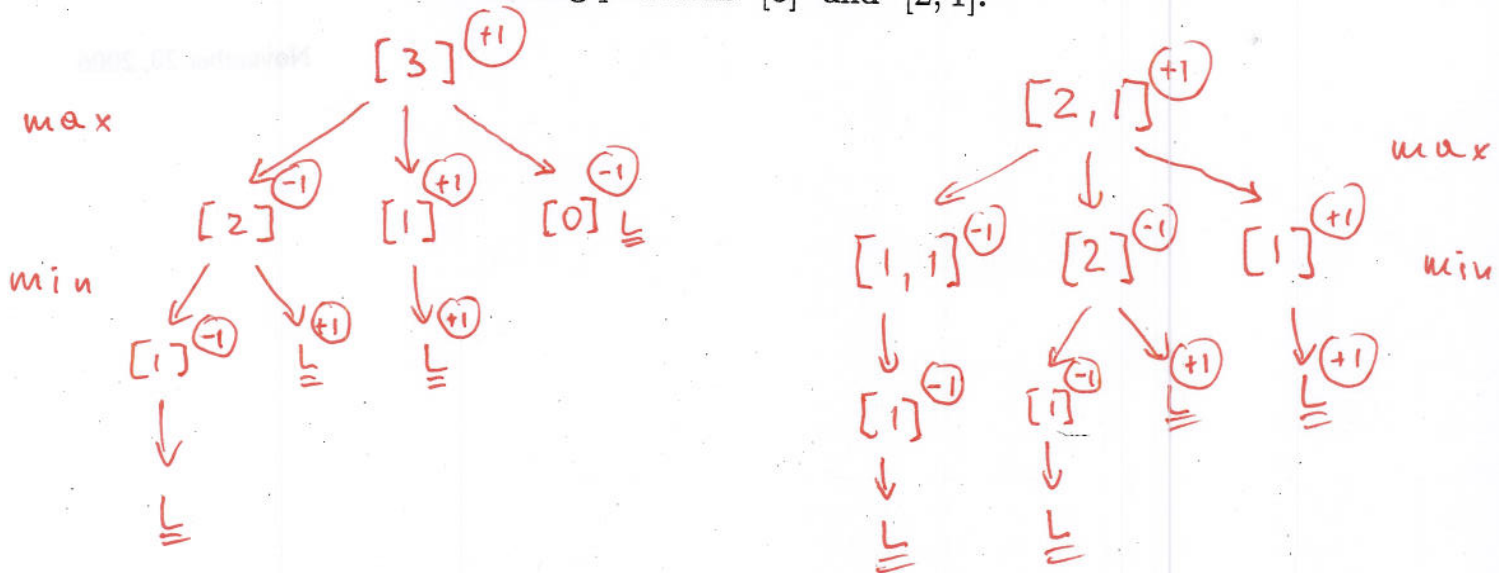 and [2, 1].
[3] +1
max
[2] -1 [1] +1 [0] -1 L
min
[1] -1 L +1 L +1
L
[2, 1] +1
max
[1, 1] -1 [2] -1 [1] +1
min
[1] -1 [1] -1 L +1 L +1
L L